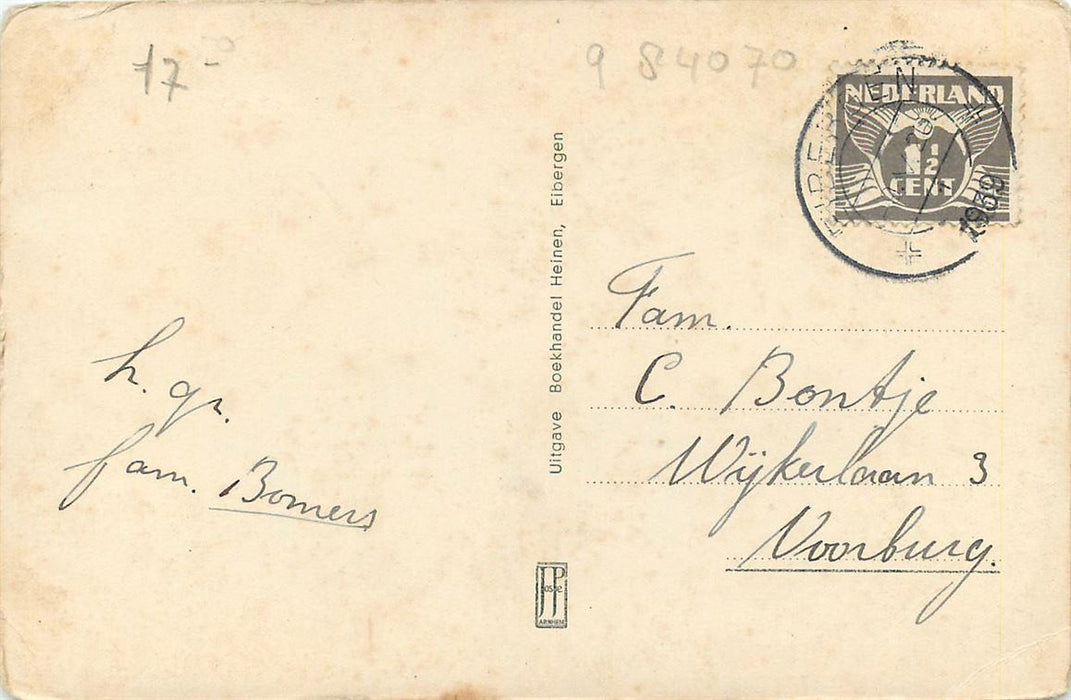 17
9 84070
NEDERLAND
1½
CENT
EIBERGEN
1939
Fam.
C. Bontje
Wijkerlaan 3
Voorburg.
h. gr.
fam. Bomers
Uitgave Boekhandel Heinen, Eibergen
JosPe
ARNHEM